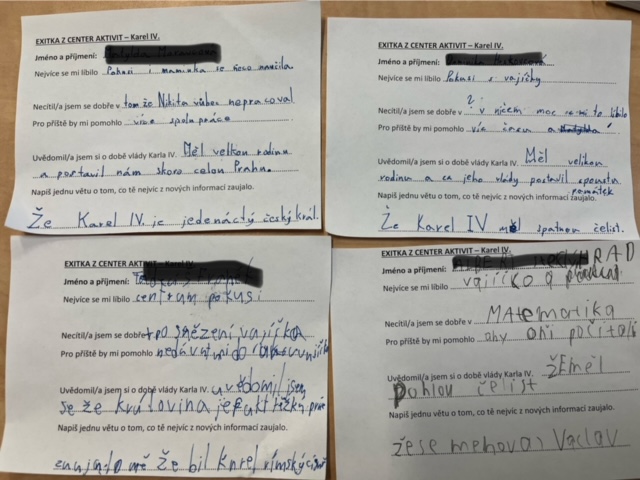 EXITKA Z CENTER AKTIVIT – Karel IV.
Jméno a příjmení:
Nejvíce se mi líbilo Pokusi i maminka se něco naučila
Necítil/a jsem se dobře v tom že Nikita vůbec nepracoval
Pro příště by mi pomohlo více spolupráce
Uvědomil/a jsem si o době vlády Karla IV. Měl velkou rodinu
a postavil nám skoro celou Prahu.
Napiš jednu větu o tom, co tě nejvíc z nových informací zaujalo.
Že Karel IV. je jedenáctý český král.
EXITKA Z CENTER AKTIVIT – Karel IV.
Jméno a příjmení:
Nejvíce se mi líbilo Pokusi s vajíčky
Necítil/a jsem se dobře v ? v ničem moc se mi to líbilo
Pro příště by mi pomohlo víc času
Uvědomil/a jsem si o době vlády Karla IV. Měl velikou
rodinu a za jeho vlády postavil spoustu
památek
Napiš jednu větu o tom, co tě nejvíc z nových informací zaujalo.
Že Karel IV měl špatnou čelist.
EXITKA Z CENTER AKTIVIT – Karel IV.
Jméno a příjmení:
Nejvíce se mi líbilo centrum pokusi
Necítil/a jsem se dobře v po snězení vajíčka
Pro příště by mi pomohlo nedávat mi do
Uvědomil/a jsem si o době vlády Karla IV. uvědomil jsem
se že královina je fakt těžká práce
Napiš jednu větu o tom, co tě nejvíc z nových informací zaujalo.
zaujalo mě že bil Karel římský
EXITKA Z CENTER AKTIVIT – Karel IV.
Jméno a příjmení: RAD
Nejvíce se mi líbilo vajíčko a
Necítil/a jsem se dobře v MAtematika
Pro příště by mi pomohlo aby oni počítali
Uvědomil/a jsem si o době vlády Karla IV. žEměl
čelist
Napiš jednu větu o tom, co tě nejvíc z nových informací zaujalo.
žese menoval Vaclav